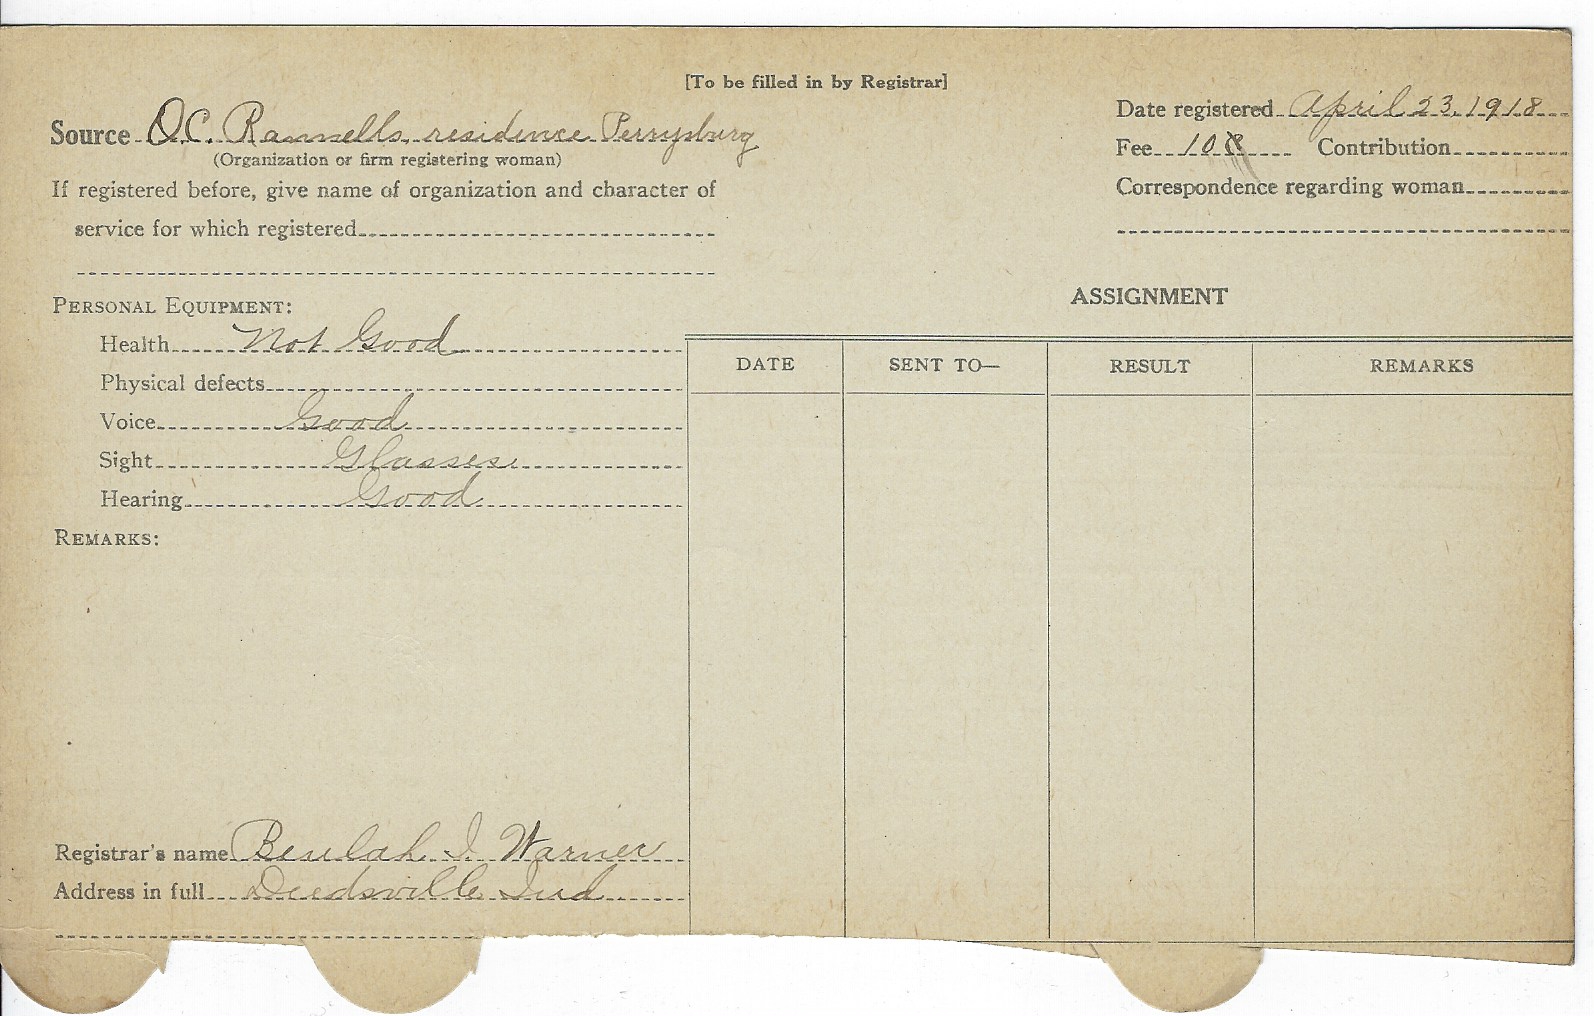 [To be filled in by Registrar]
Date registered April 23, 1918
Source O.C. Rannells, residence Perrysburg
(Organization or firm registering woman)
Fee 10¢ Contribution
If registered before, give name of organization and character of
Correspondence regarding woman
service for which registered
PERSONAL EQUIPMENT:
ASSIGNMENT
Health Not Good
DATE SENT TO— RESULT REMARKS
Physical defects
Voice Good
Sight Glasses
Hearing Good
REMARKS:
Registrar's name Beulah I. Warner
Address in full Deedsville Ind